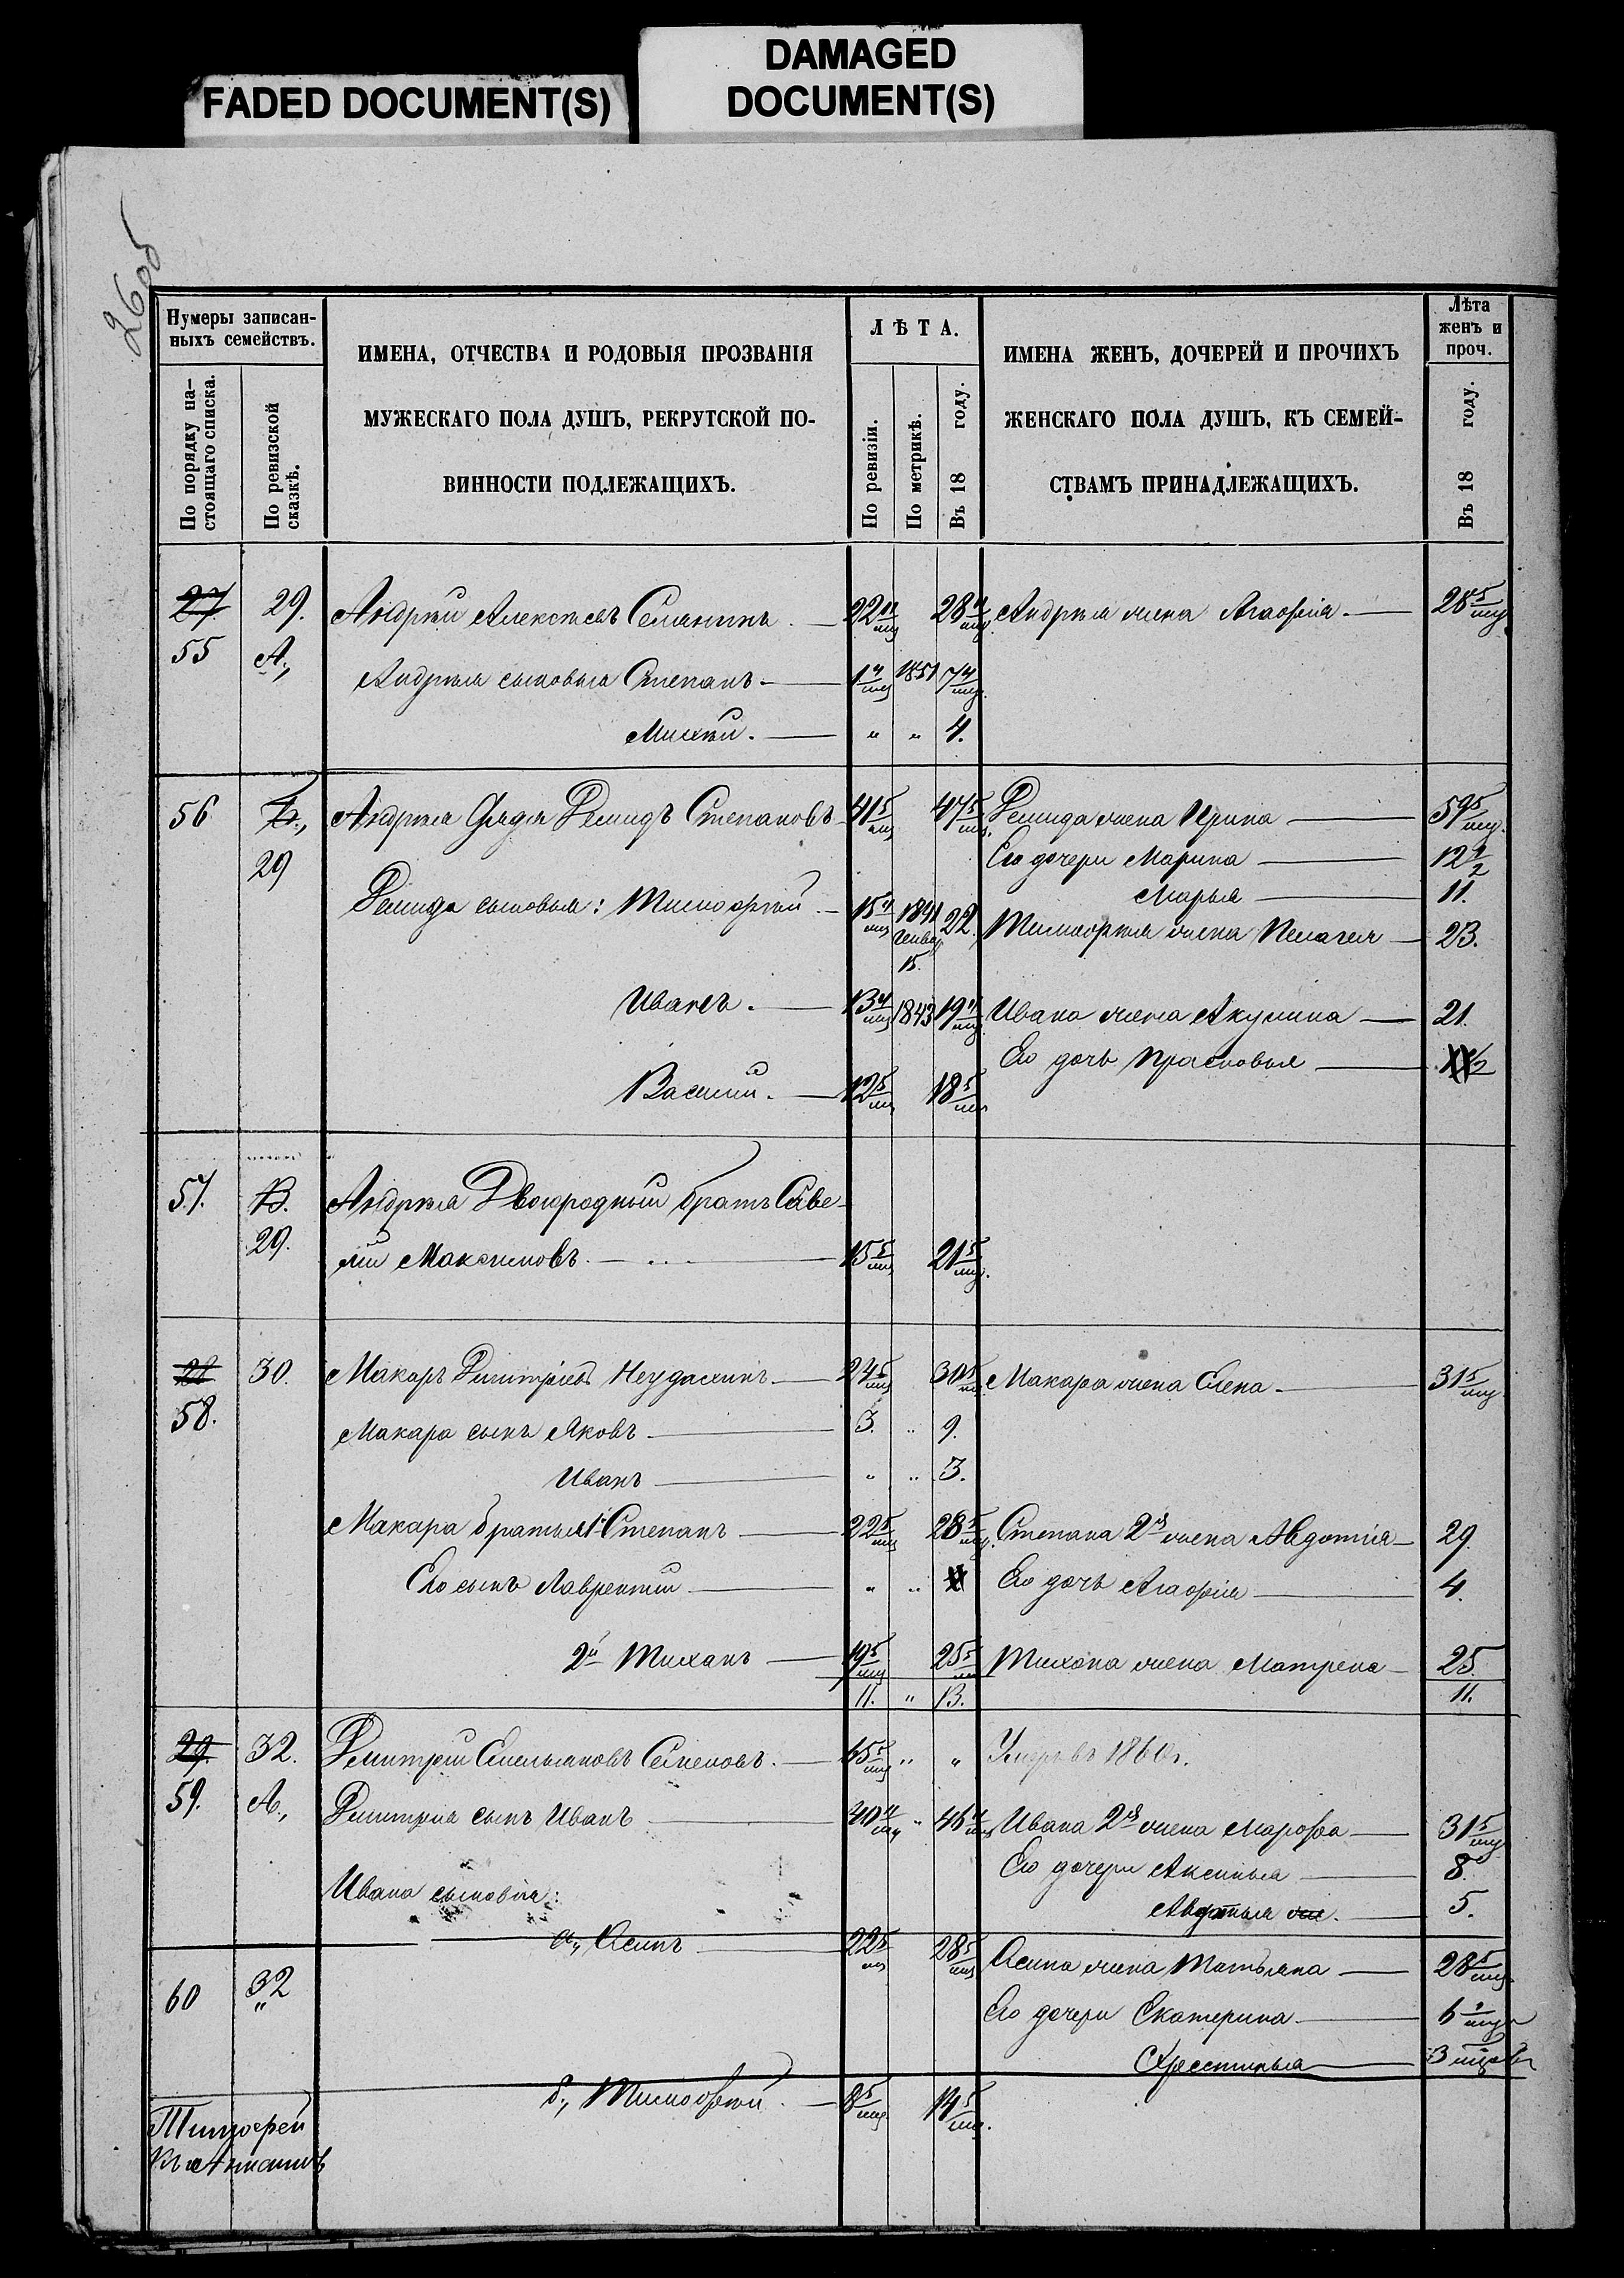 FADED DOCUMENT(S)
DAMAGED
DOCUMENT(S)
26об
Нумеры записан-
ныхъ семействъ.
По порядку на-
стоящаго списка.
По ревизской
сказкѣ.
ИМЕНА, ОТЧЕСТВА И РОДОВЫЯ ПРОЗВАНІЯ
МУЖЕСКАГО ПОЛА ДУШЪ, РЕКРУТСКОЙ ПО-
ВИННОСТИ ПОДЛЕЖАЩИХЪ.
ЛѢТА.
По ревизіи.
По метрикѣ.
Въ 18 году.
ИМЕНА ЖЕНЪ, ДОЧЕРЕЙ И ПРОЧИХЪ
ЖЕНСКАГО ПОЛА ДУШЪ, КЪ СЕМЕЙ-
СТВАМЪ ПРИНАДЛЕЖАЩИХЪ.
Лѣта
женъ и
проч.
Въ 18 году.
27 29. Андрѣй Алексѣевъ 22 28 Андрѣя жена Агаѳія 28 5/мц
55 А., Андрѣя сыновья Степанъ 1 1851 7
Михѣй. " " 4.
56 Б., Андрѣя Дядя Демидъ Степановъ 41 5/мц 47 5/мц Демида жена Ирина 59 5/мц.
29 Его дочери Марина 12 1/2
Марья 11.
Демида сыновья: Тимоѳей 15 1841 22 Тимоѳея жена Пелагея 23.
Генвар
15.
Иванъ. 13 1843 19 Ивана жена Акулина 21.
Его дочь Прасковья
Василій. 12 5/мц 18 5/мц
57. В. Андрѣя Двоюродный братъ Саве-
29. лій Максимовъ. 15 5/мц 21 5/мц.
28 30. Макаръ Дмитріевъ Неудахинъ 24 5/мц 30 5/мц Макара жена Елена 31 5/мц
58. Макара сынъ Яковъ 3. " 9.
Иванъ " " 3.
Макара братья 1. Степанъ 22 5/мц 28 5/мц. Степана 2я жена Авдотія 29.
Его сынъ Лаврентій " " Его дочь Агаѳія 4.
2й Тиханъ 19 5/мц 25 5/мц Тихона жена Матрена 25.
11. " 13. 11.
29. 32. Дмитрій Емельяновъ 65 5/мц " " Умеръ въ 1860 г.
59. А., Дмитрія сынъ Иванъ 40 " 46 Ивана 2я жена Марѳа 31 5/мц
Его дочери Аксинья 8.
Ивана сыновья:
Авдотья 5.
а., Осипъ 22 5/мц 28 5/мц Осипа жена Татьяна 28 5/мц
60 32
" Его дочери Екатерина 6
Хрестинья 3
б., Тимоѳей. 8 5/мц 14 5/мц.
Тимоѳей